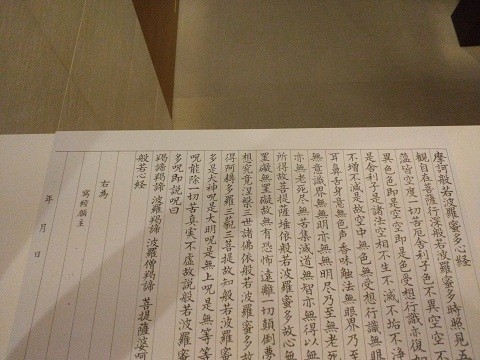 摩訶般若波羅蜜多心経
観自在菩薩行深般若波羅蜜多時照見五
蘊皆空度一切苦厄舎利子色不異空空不
異色色即是空空即是色受想行識亦復如
是舎利子是諸法空相不生不滅不垢不
不増不減是故空中無色無受想行識無眼
耳鼻舌身意無色声香味触法無眼界乃至
無意識界無無明亦無無明尽乃至無老死
亦無老死尽無苦集滅道無智亦無得以無
所得故菩提薩埵依般若波羅蜜多故心無
罣礙無罣礙故無有恐怖遠離一切顛倒夢
想究竟涅槃三世諸佛依般若波羅蜜多故
得阿耨多羅三藐三菩提故知般若波羅蜜
多是大神呪是大明呪是無上呪是無等等
呪能除一切苦真実不虚故説般若波羅蜜
多呪即説呪曰
羯諦羯諦 波羅羯諦 波羅僧羯諦 菩提薩婆訶
般若心経
右為
写経願主
年 月 日